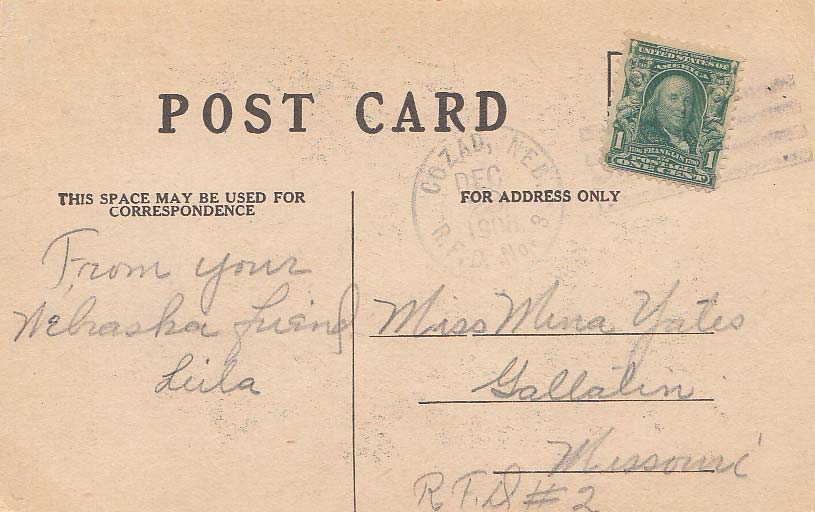 POST CARD
UNITED STATES OF
AMERICA
1 1
1706 FRANKLIN 1790
POSTAGE
ONE CENT
COZAD, NEB.
DEC
R.F.D. No. 3
THIS SPACE MAY BE USED FOR
CORRESPONDENCE
FOR ADDRESS ONLY
From your
Nebraska friend
Leila
Miss Mina Yates
Gallatin
Missouri
R F D #2